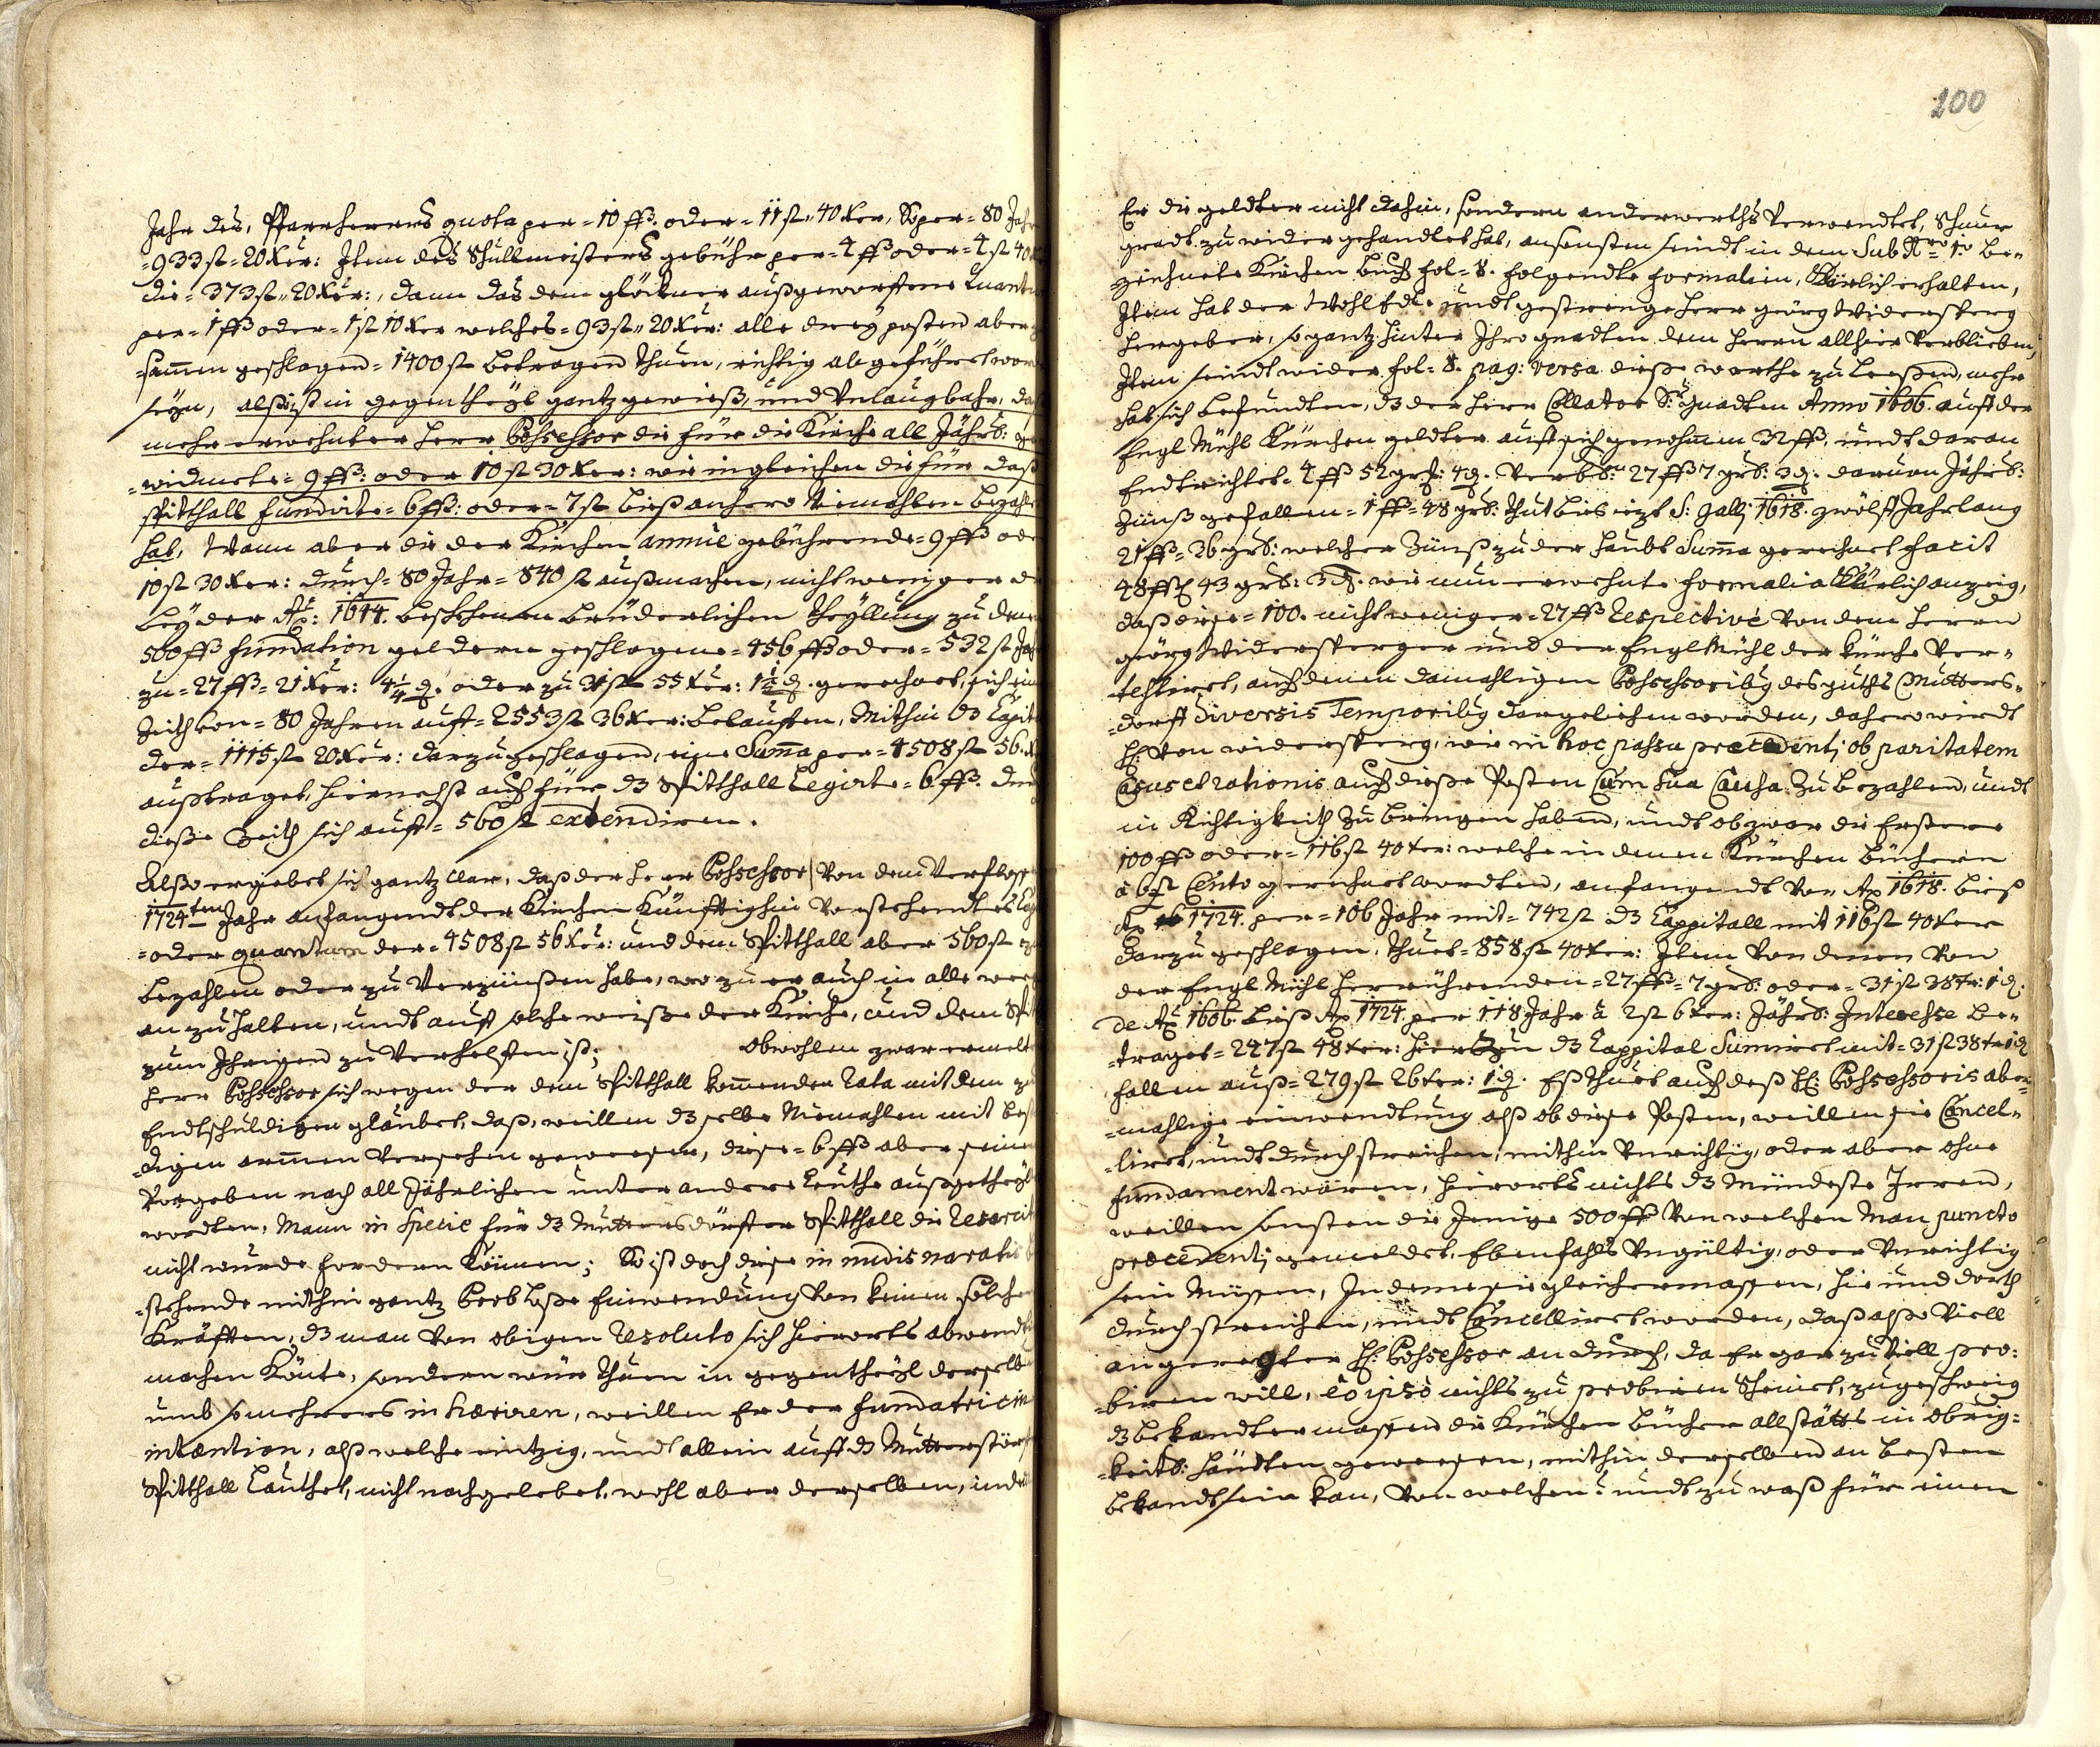 Jahr des, Pfarrherrns quota per = 10 ßß. oder = 11 fl. 40 Xer, So per = 80 Jahr
= 933 fl = 20 Xer: Item des Schullmeisters gebühr per = 4 ßß oder = 4 fl 40
die = 373 fl. 20 Xer:, dann das dem glöckner außgeworffene Quant
per = 1 ßß oder = 1 fl 10 Xer welches = 93 fl. 20 Xer: alle drey posten aber
=sam̃en geschlagen = 1400 fl betragen thuen, richtig abgeführet word
seyn, alß ist in gegentheyl gantz gewieß, und Unlaugbahr, daß
mehr erwehnter Herr Possessor die für die Kirche all Jährl:
=widmete = 9 ßß: oder 10 fl 30 Xer: wie ingleichen die für daß
Spitthall fundirte = 6 ßß: oder = 7 fl bieß anhero Niemahlen bezahlt
hat, Wann aber die der Kirchen annuè gebührende = 9 ßß ode
10 fl 30 Xer: durch = 80 Jahr = 840 fl außmachen, nicht weniger
bey der Aõ: 1644. beschehenen brüderlichen Theyllung zu den
500 ßß fundation geldern geschlagene = 456 ßß oder = 532 fl Jäh
zu = 27 ßß = 21 Xer: 4¼ d. oder zu 31 fl 55 Xer: 1½ d. gerechnet, sich
Zeith von = 80 Jahren auff = 2553 fl 36 Xer: belauffen, Mithin dz Capit
der = 1115 fl 20 Xer: darzu geschlagen, eine Sum̃a per = 4508 fl 56.
außtraget, hiernechst auch für dz Spitthall Legirte = 6 ßß. dur
dieße Zeith sich auff = 560 fl extendiren.
Alßo ergiebet sich gantz clar, daß der Herr Possessor | von dem Verfloss
1724ten Jahr anfangendt der Kirchen Künfftighin Vorstehendtes
=oder quantum der = 4508 fl 56 Xer: und dem Spitthall aber 560 fl
bezahlen oder zu Verzinßen habe, wo zu er auch in alle weeg
an zu halten, undt auff solche weiße der Kirche, und dem Spit
zum Ihrigen zu Verhelffen ist; Obwohlen zwar ermelt
Herr Possessor sich wegen der dem Spitthall kom̃enden Rata mit dem
Endtschuldigen glaubet, daß, weillen dz selbe Niemahlen mit
=digen arm̃en Versehen geweesen, diese = 6 ßß aber seine
Vorgeben nach all Jährlichen unter andere Leuthe außgetheyl
wordten, Mann in specie für dz Muttersdörffer Spitthall die Resarcit
nicht wurde fordern Können; So ist doch diese in nudis naratis
=stehende mithin gantz Prob Loße Einwendung von keinen solche
Kräfften, dz man von obigen Resoluto sich hierorts abwendt
machen Könte, sondern wür thuen in gegentheyl derselbe
umb so mehrers in hæriren, weillen Er der fundatricin
intention, alß welche eintzig, undt allein auff dz Muttersdörff
Spitthall Lauthet, nicht nachgelebet, wohl aber derselben, inde
200
Er die geldter nicht dahin, sondern anderwerths Verwendtet, Schnur
gradt zu wider gehandlet hat, ansonsten seindt in dem Sub Nro 1o be=
zeichnete Kirchen Buch fol = 8. folgendte formalien, Klärlich erhalten,
Item hat der Wohl Edle undt gestrenge Herr georg Widersperg
hergeben, so gantz hinter Ihro gnadten dem Herrn allhier Verblieben,
Item seindt wider fol = 8. pag: versa dieße worthe zu Leeßen, mehr
hat sich befundten, dz der Herr Collator Sr gnadten Anno 1606. auff der
Engl Mühl Kirchen geldter auff sich genohmen 32 ßß. undt daran
Endtrichtet 4 ßß 52 grs: 4 d. Verbl: 27 ßß 7 grs: 3 d. daruon Jährl:
Zünß gefallen = 1 ßß = 48 grs: thut bies iezt S: Gallj 1618. zwölff Jahr lang
21 ßß = 36 grs: welcher Zünß zu der haubt Sum̃a gerechnet facit
48 ßß 43 grs: 3 d. wie nun erwehnte formalia Klärlich anzeig,
daß diese = 100. nicht weniger = 27 ßß respectivè von dem Herrn
georg Widersperger und der Engl Mühl der kirche Ver=
testiret, auch denen damahligen Possessoribg des guths Mutters=
=dorff diversis Temporibg dargeliehen worden, dahero wirdt
H: Von widersperg, wie in hoc passu precedentj ob paritatem
Casus et rationis auch dieße Posten Cum sua Causa zu bezahlen, undt
in Richtigkeith zu bringen haben, undt obzwar die Erstere
100 ßß oder = 116 fl 40 xer: welche in denen Kirchen büchern
à 6 fl Cento gerechnet wordten, anfangendt von Aõ 1618. bieß
Aõ 1724. per = 106 Jahr mit = 742 fl dz Cappitall mit 116 fl 40 xer
darzu geschlagen, thuet = 858 fl 40 xer: Item von denen von
der Engl Mühl Herrührenden = 27 ßß = 7 grs: oder = 31 fl 38 xr: 1 d.
de Aõ 1606. bieß Aõ 1724. per 118 Jahr à 2 fl 6 xer: Jährl: Interesse be=
=traget = 247 fl 48 xer: hierzu dz Cappital Sumiret mit = 31 fl 38 xr 1 d
fallen auß = 279 fl 26 xer: 1 d. Eß thuet auch deß H: Possessoris aber=
=mahlige einwendtung alß ob diese Posten, weillen sie Cancel=
=liret, undt durchstreichen, mithin Unrichtig, oder aber ohne
fundament wären, hierorts nichts dz Mündeste Irren,
weillen sonsten die Jenige 500 ßß Von welchen Man puncto
precedentj gemeldet, Ebenfahls Ungültig, oder Unrichtig
sein Müssen, Indeme sie gleichermassen, hie und dorth
durchstreichen, undt Cancelliret worden, daß alßo Viell
angeregter H: Possessor an durch, da Er gar zu Viell pro=
=biren will, eo ipso nichts zu probiren scheinet, zugeschweig
dz bekandtermassen die Kirchen bücher allstätts in Obrig=
=keitl: Händten geweesen, mithin derselben am besten
bekandt sein kan, Von welchen? undt zu waß für einen